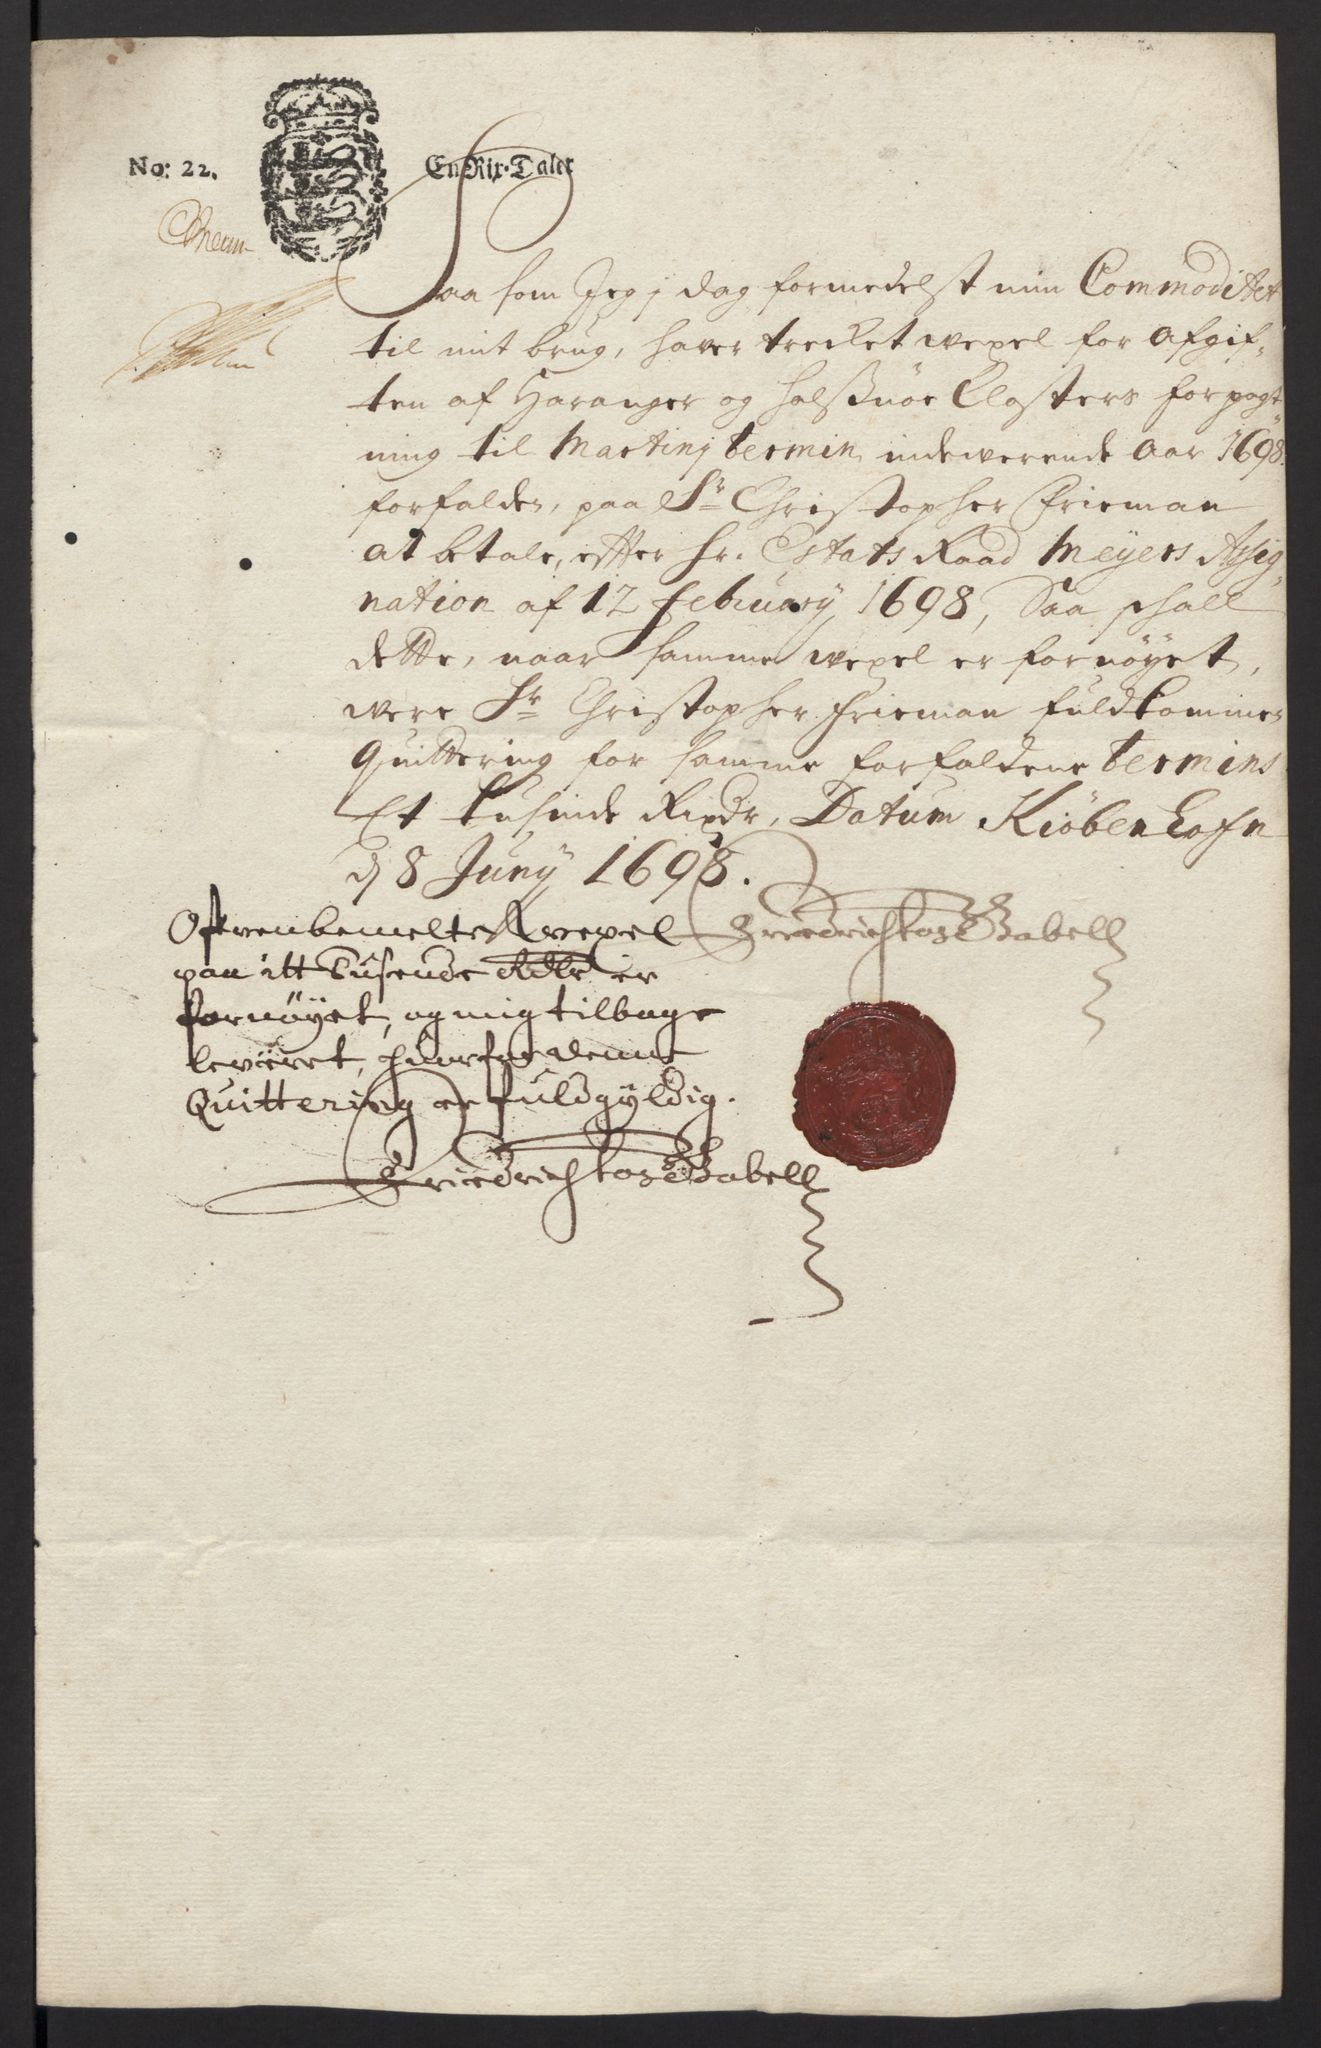 No: 22.
En Rix-Taler
Saa som Jeg j dag formedelst min Commoditet
til mit brug, hafver trecket wexel for Afgif-
ten af Haranger og Halsnöe Closters forpagt-
ning til Martinj termin indewerende Aar 1698.
forfalden, paa Sr Christopher Frieman
at betale, efter Hr. Estats Raad Meyers Assig-
nation af 12 February 1698, Saa schall
dette, naar samme wexel er fornöyet,
were Sr Christopher Frieman fuldkommen
Quittering for samme forfaldene termins
Et tusinde Rixdr, Datum Kiöbenhafn
d 8 Juny 1698.
Ofvenbemelte wexel
paa itt Tusende Rdlr er
fornöyet, og mig tilbage
leveret, hvorfor denne
Quittering er fuldgyldig.
Friedrich Gabell
Friedrich Gabell